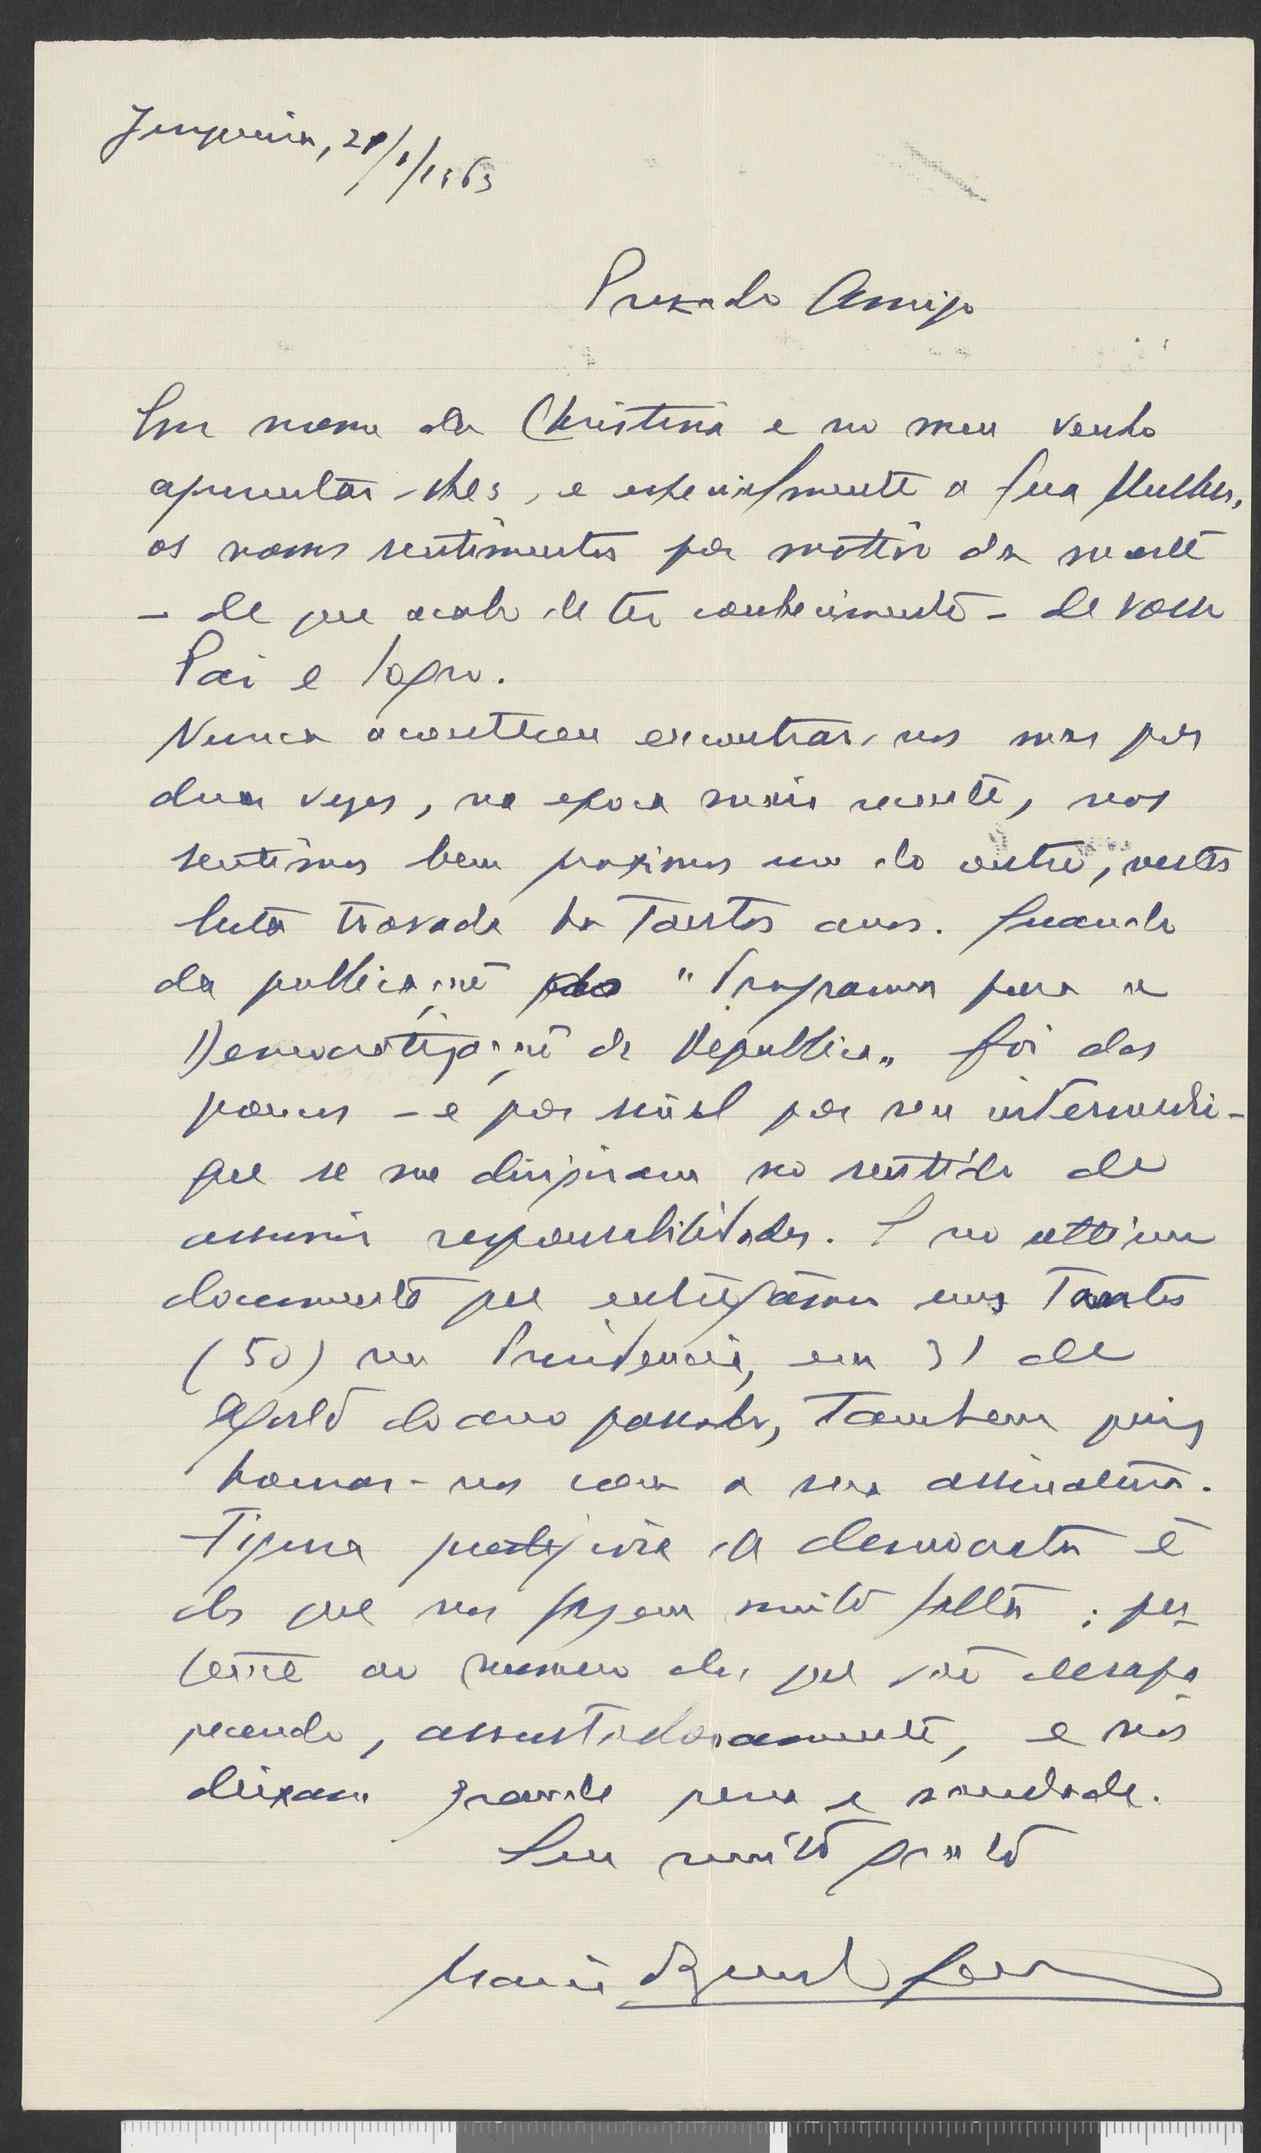 Junqueira, 21/1/1963
Prezado Amigo
Em nome da Christina e no meu venho
apresentar-lhes, e especialmente a Sua Mulher,
os nossos sentimentos por motivo da morte
- de que acabo de ter conhecimento - de vosso
Pai e Sogro.
Nunca aconteceu encontrar-nos mas por
duas vezes, na epoca mais recente, nos
sentimos bem proximos um do outro, nesta
luta travada ha tantos anos. Quando
da publicação do "Programa para a
Democratização da Republica" foi dos
poucos - e por sinal por seu intermedio -
que se me dirigiram no sentido de
assumir responsabilidades. E no ultimo
documento que entregámos uns tantos
(50) na Presidencia, em 31 de
Agosto do ano passado, tambem quiz
honrar-nos com a sua assinatura.
Figura prestigiosa de democrata é
dos que nos fazem muita falta; per-
tence ao numero dos que vão desapa-
recendo, assustadoramente, e nos
deixam grande pena e saudade.
Seu muito grato